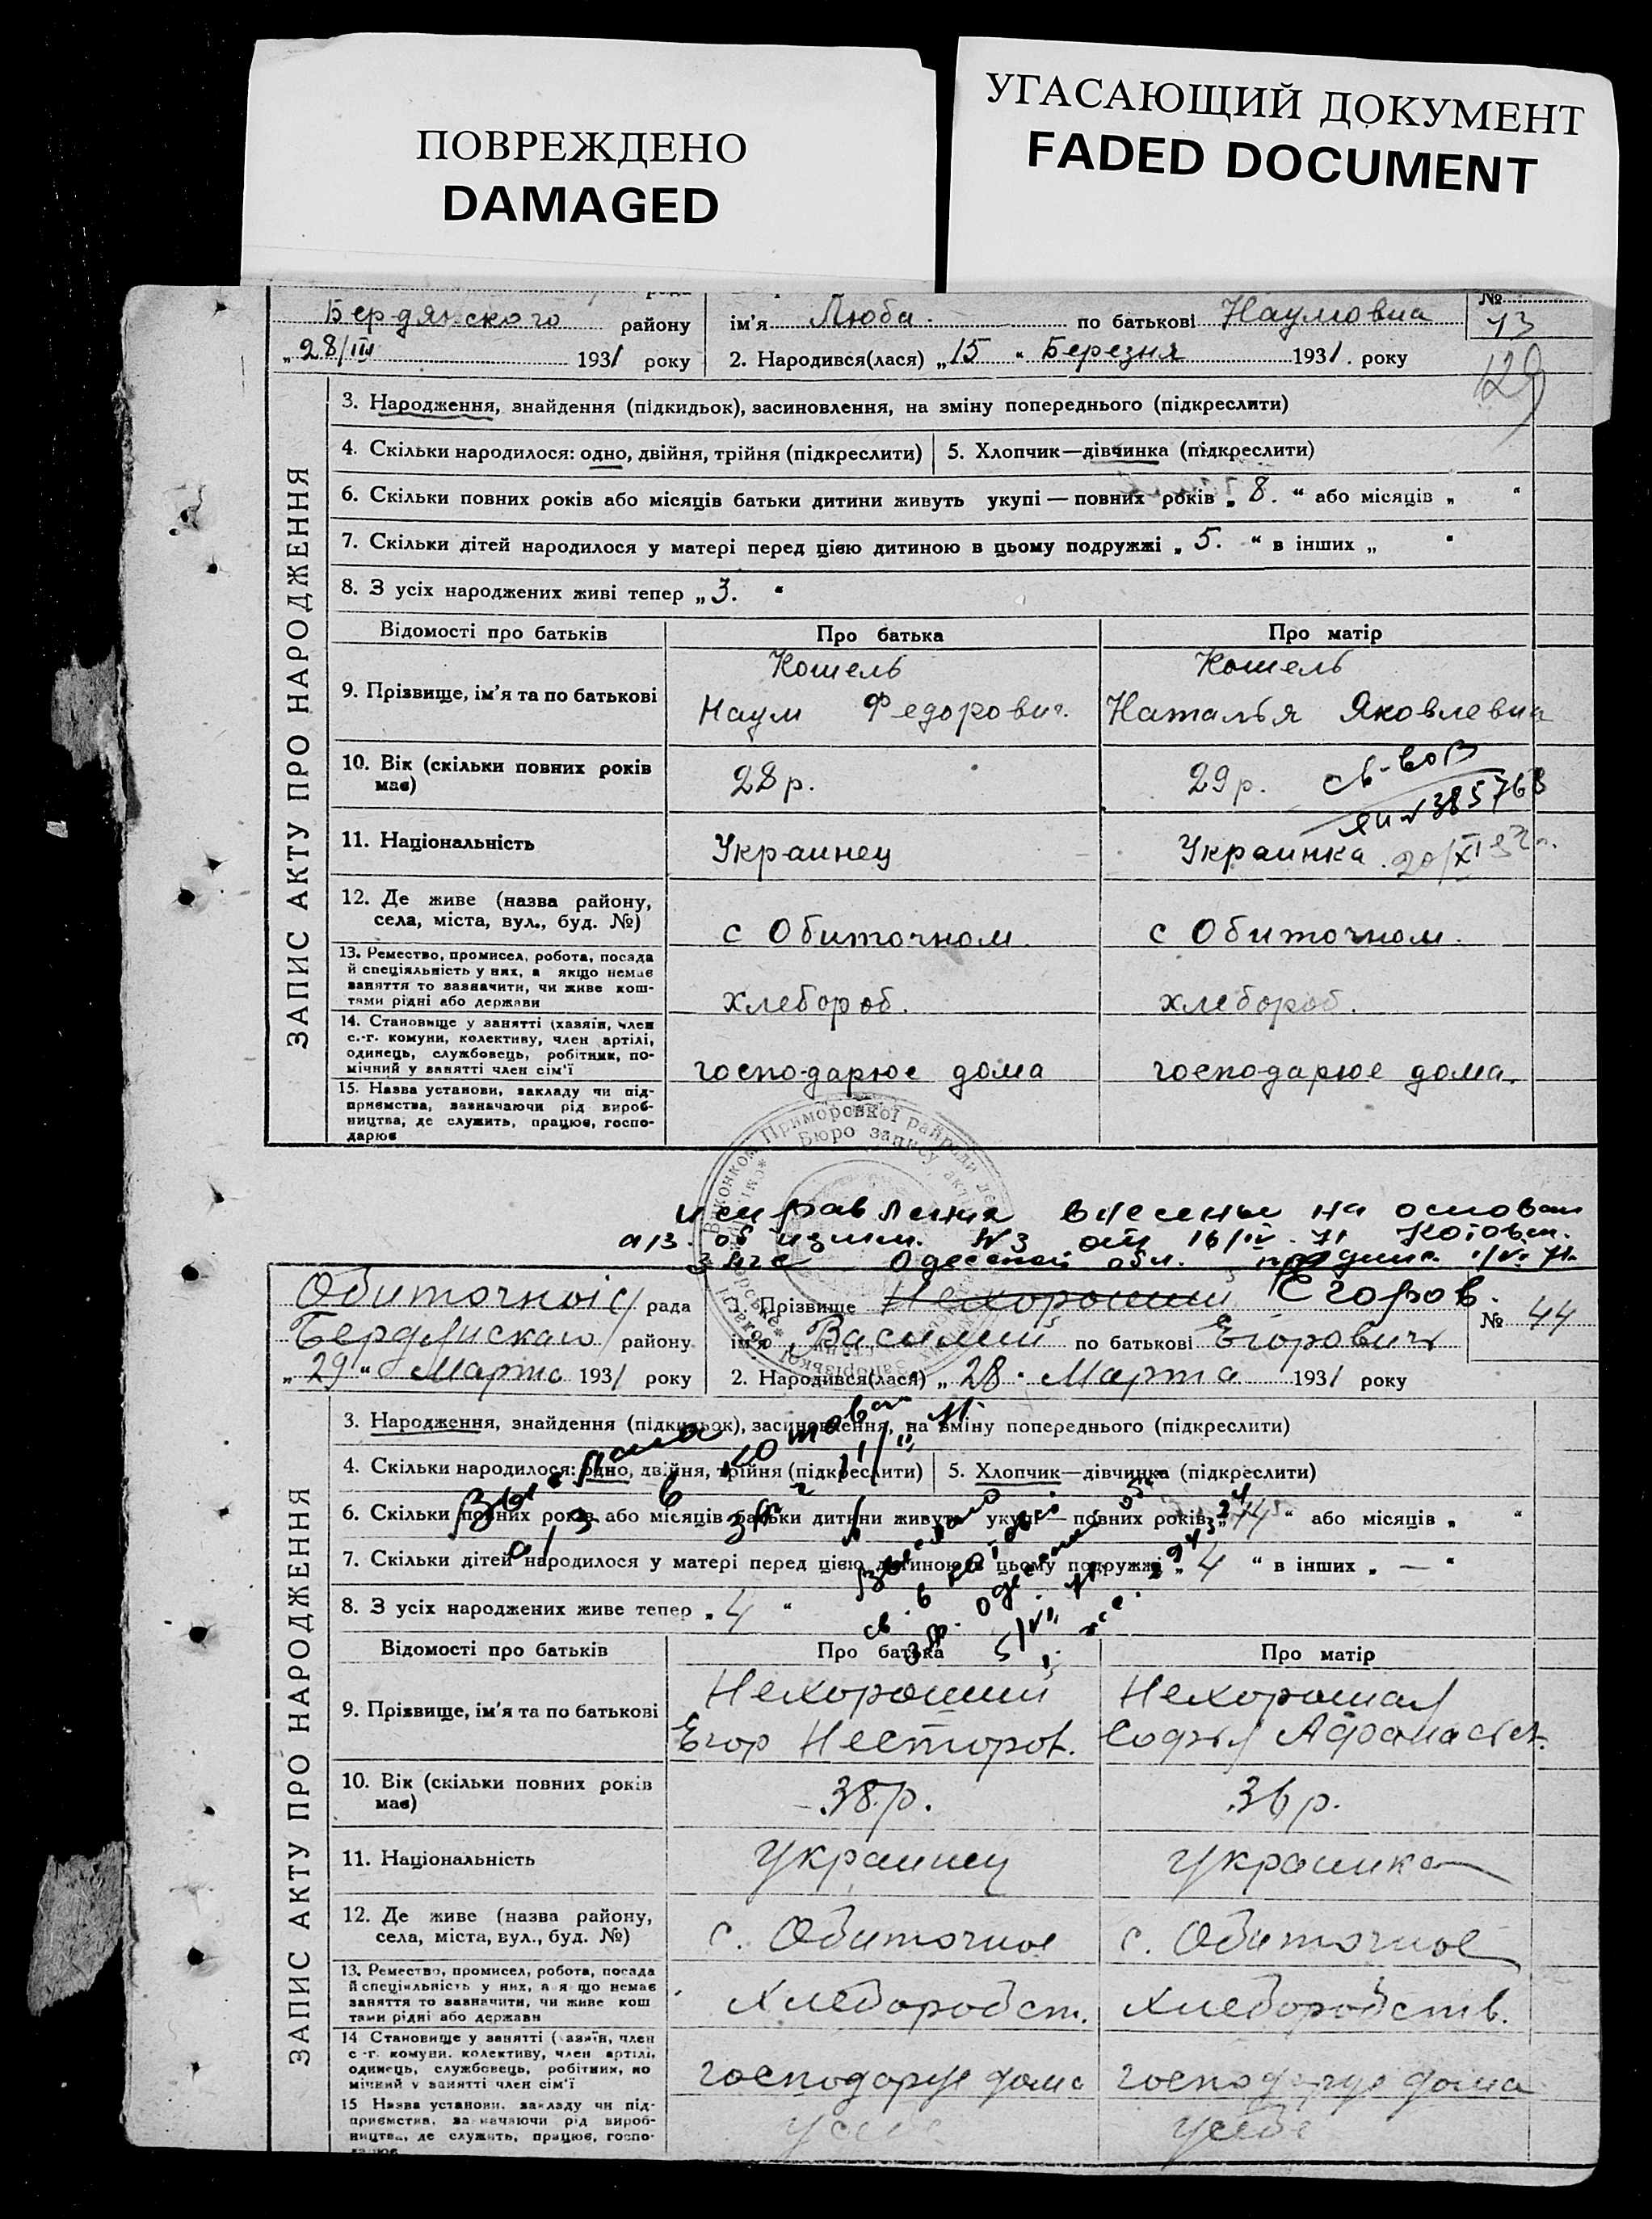 ПОВРЕЖДЕНО
DAMAGED
УГАСАЮЩИЙ ДОКУМЕНТ
FADED DOCUMENT
Бердянского району
ім'я Люба по батькові Наумовна
№
„28/III 1931 року
2. Народився(лася) „15 “ Березня 1931. року
129
ЗАПИС АКТУ ПРО НАРОДЖЕННЯ
3. Народження, знайдення (підкидьок), засиновлення, на зміну попереднього (підкреслити)
4. Скільки народилося: одно, двійня, трійня (підкреслити)
5. Хлопчик—дівчинка (підкреслити)
6. Скільки повних років або місяців батьки дитини живуть укупі — повних років „ 8. “ або місяців „ “
7. Скільки дітей народилося у матері перед цією дитиною в цьому подружжі „ 5. “ в інших „ “
8. З усіх народжених живі тепер „3. “
Відомості про батьків Про батька Про матір
9. Прізвище, ім'я та по батькові
Кошель
Наум Федорович.
Кошель
Наталья Яковлевна
10. Вік (скільки повних років має)
28 р.
29 р.
св-во В
385768
11. Національність
Украинец
Украинка.
12. Де живе (назва району,
села, міста, вул., буд. №)
с Обиточном.
с Обиточном.
13. Ремество, промисел, робота, посада
й спеціяльність у них, а якщо немає
заняття то зазначити, чи живе кош-
тами рідні або держави
хлебороб.
хлебороб.
14. Становище у занятті (хазяїн, член
с.-г. комуни, колективу, член артілі,
одинець, службовець, робітник, по-
мічний у занятті член сім'ї
господарює дома
господарює дома.
15. Назва установи, закладу чи під-
приємства, зазначаючи рід вироб-
ництва, де служить, працює, госпо-
дарює
Приморської райради
Бюро запису актів
исправления внесены на основан
а/з об измен. №3 от 16/IV-71 Котовск.
Одесской обл.
Обиточної рада
1. Прізвище Нехороший Егоров.
№ 44
Бердянскаго району
ім'я Василий по батькові Егорович
„29“ Марта 1931 року
2. Народився(лася) „ 28 “ Марта 1931 року
ЗАПИС АКТУ ПРО НАРОДЖЕННЯ
3. Народження, знайдення (підкидьок), засиновлення, на зміну попереднього (підкреслити)
4. Скільки народилося: одно, двійня, трійня (підкреслити)
5. Хлопчик—дівчинка (підкреслити)
6. Скільки повних років або місяців батьки дитини живуть укупі — повних років „ “ або місяців „ “
7. Скільки дітей народилося у матері перед цією дитиною в цьому подружжі „ 4 “ в інших „ — “
8. З усіх народжених живе тепер „ 4 “
Відомості про батьків Про батька Про матір
9. Прізвище, ім'я та по батькові
Нехороший
Егор Несторов.
Нехорошая
Софья Афанасьев.
10. Вік (скільки повних років має)
38 р.
36 р.
11. Національність
Украинец
Украинка
12. Де живе (назва району,
села, міста, вул., буд. №)
с. Обиточное
с. Обиточное
13. Ремество, промисел, робота, посада
й спеціяльність у них, а якщо немає
заняття то зазначити, чи живе кош
тами рідні або держави
Хлебородст.
Хлебородств.
14 Становище у занятті (хазяїн, член
с.-г. комуни, колективу, член артілі,
одинець, службовець, робітник, по
мічний у занятті член сім'ї
господарує дома
господарує дома
15 Назва установи, закладу чи під-
приємства, зазначаючи рід вироб-
ництва, де служить, працює, госпо-
дарює
у себе
у себе